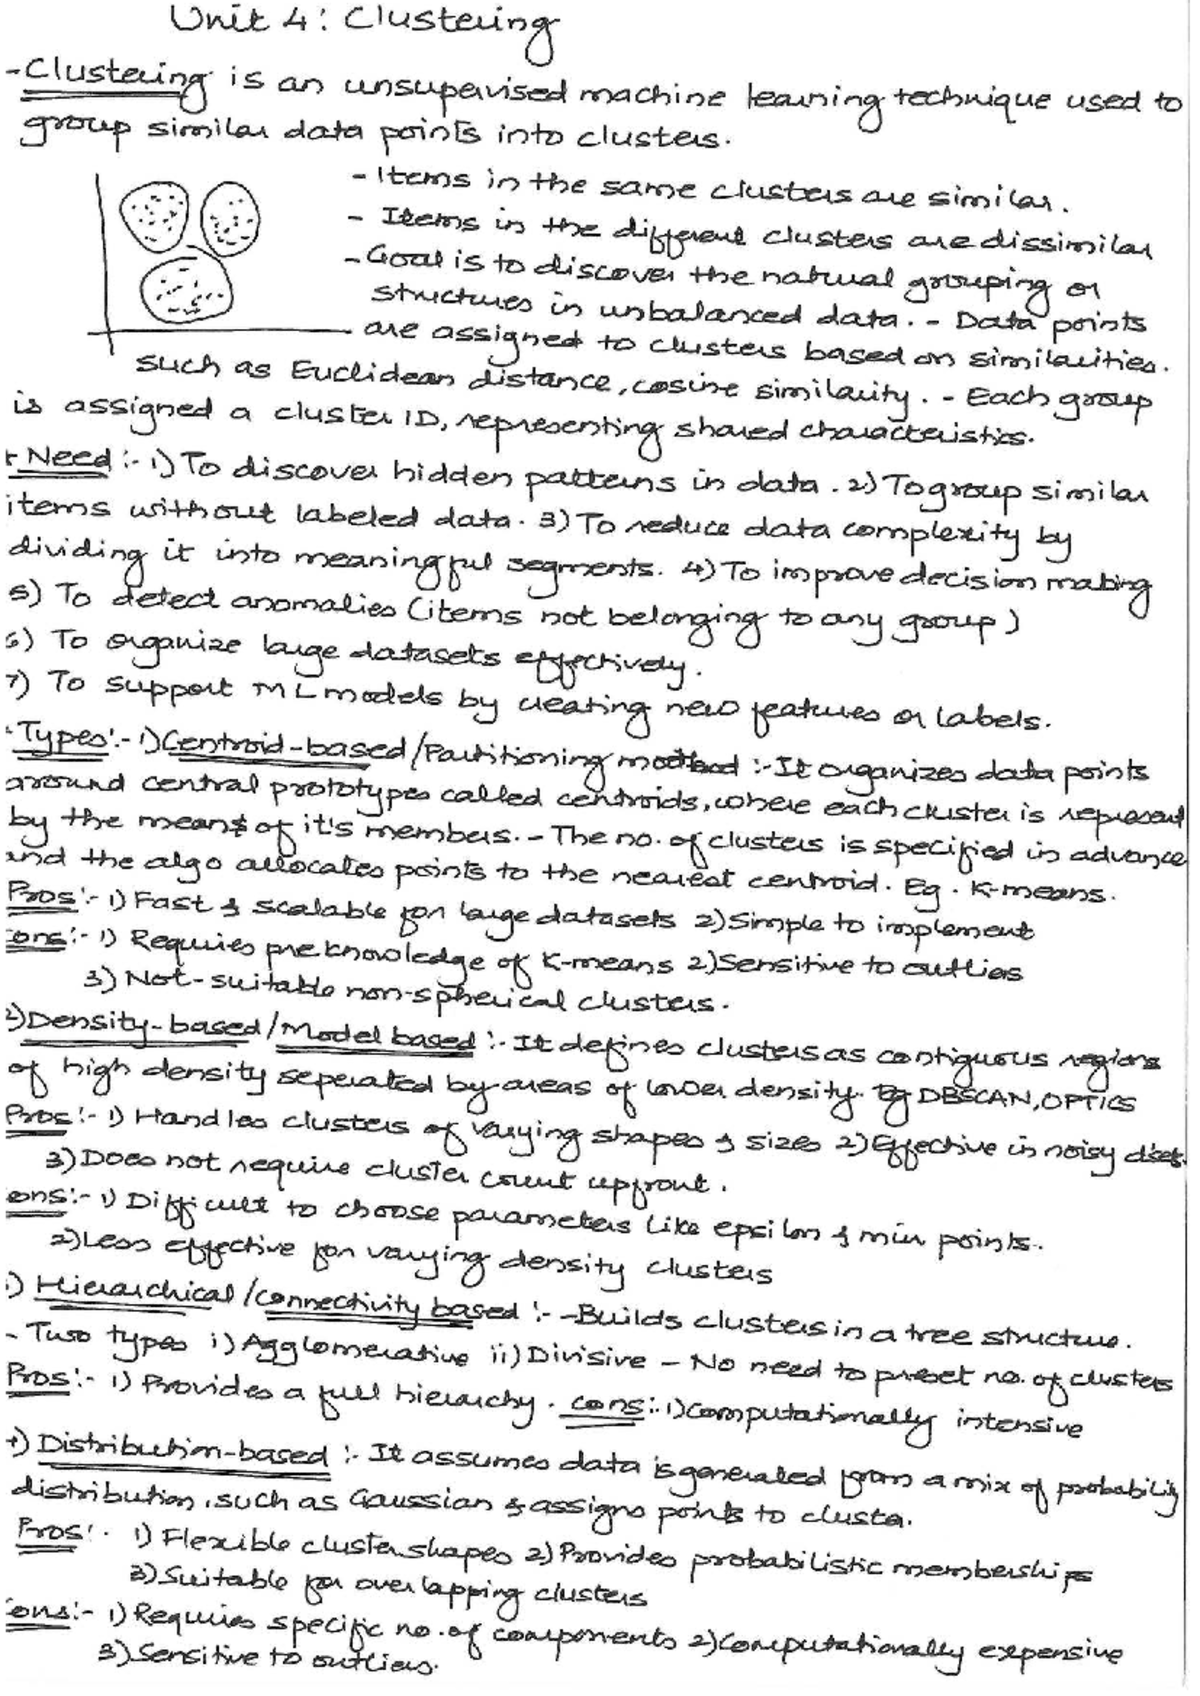 Unit 4: Clustering
- Clustering is an unsupervised machine learning technique used to
group similar data points into clusters.
- Items in the same clusters are similar.
- Items in the different clusters are dissimilar
- Goal is to discover the natural grouping or
structures in unbalanced data. - Data points
are assigned to clusters based on similarities.
such as Euclidean distance, cosine similarity. - Each group
is assigned a cluster ID, representing shared characteristics.
+ Need :- 1) To discover hidden patterns in data. 2) To group similar
items without labeled data. 3) To reduce data complexity by
dividing it into meaningful segments. 4) To improve decision making
5) To detect anomalies (items not belonging to any group)
6) To organize large datasets effectively.
7) To support ML models by creating new features or labels.
- Types :- 1) Centroid-based / Partitioning method :- It organizes data points
around central prototypes called centroids, where each cluster is represent
by the means of it's members. - The no. of clusters is specified in advance
and the algo allocates points to the nearest centroid. Eg. K-means.
Pros :- 1) Fast & scalable for large datasets 2) Simple to implement
Cons :- 1) Requires pre knowledge of K-means 2) Sensitive to outlies
3) Not-suitable non-spherical clusters.
2) Density-based / Model based :- It defines clusters as contiguous regions
of high density seperated by areas of lower density. Eg DBSCAN, OPTICS
Pros :- 1) Handles clusters of varying shapes & sizes 2) Effective in noisy
3) Does not require cluster count upfront.
Cons :- 1) Difficult to choose parameters like epsilon & min points.
2) Less effective for varying density clusters
3) Hierarchical / connectivity based :- - Builds clusters in a tree structure.
- Two types i) Agglomerative ii) Divisive - No need to preset no. of clusters
Pros :- 1) Provides a full hierarchy. cons :- 1) Computationally intensive
4) Distribution-based :- It assumes data is generated from a mix of probability
distribution, such as Gaussian & assigns points to cluster.
Pros :- 1) Flexible cluster shapes 2) Provides probabilistic memberships
3) Suitable for overlapping clusters
Cons :- 1) Requires specific no. of components 2) Computationally expensive
3) Sensitive to outliers.